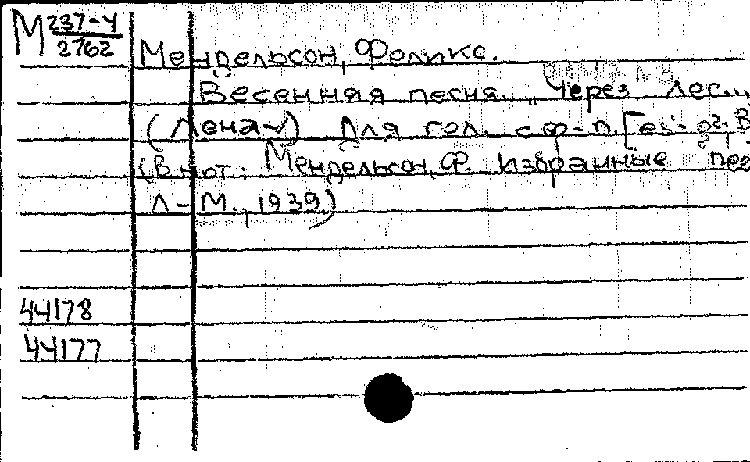 М 237-У
2762
Мендельсон, Феликс.
Весенняя песня. "Через лес...
(Ленау) Для гол. с ф-п. [es¹-g²; B
(В нот: Мендельсон, Ф. Избранные пес
Л-М., 1939)
44178
44177